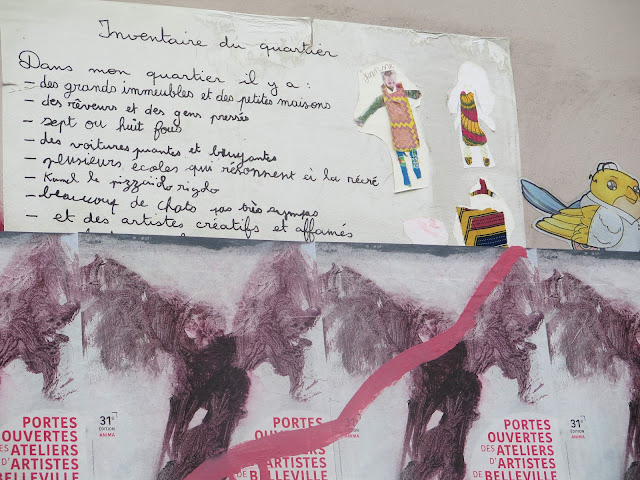 Inventaire du quartier
Dans mon quartier il y a :
- des grands immeubles et des petites maisons
- des rêveurs et des gens pressés
- sept ou huit fous
- des voitures puantes et bruyantes
- plusieurs écoles qui résonnent à la récré
- Kamel le pizzaiolo rigolo
- beaucoup de chats pas très sympas
- et des artistes créatifs et affamés
PORTES
OUVERTES
DES ATELIERS
D'ARTISTES
DE BELLEVILLE
31e
ÉDITION
ANIMA
PORTES
OUVERTES
DES ATELIERS
D'ARTISTES
DE BELLEVILLE
31e
ÉDITION
ANIMA
PORTES
OUVERTES
DES ATELIERS
D'ARTISTES
DE BELLEVILLE
31e
ÉDITION
ANIMA